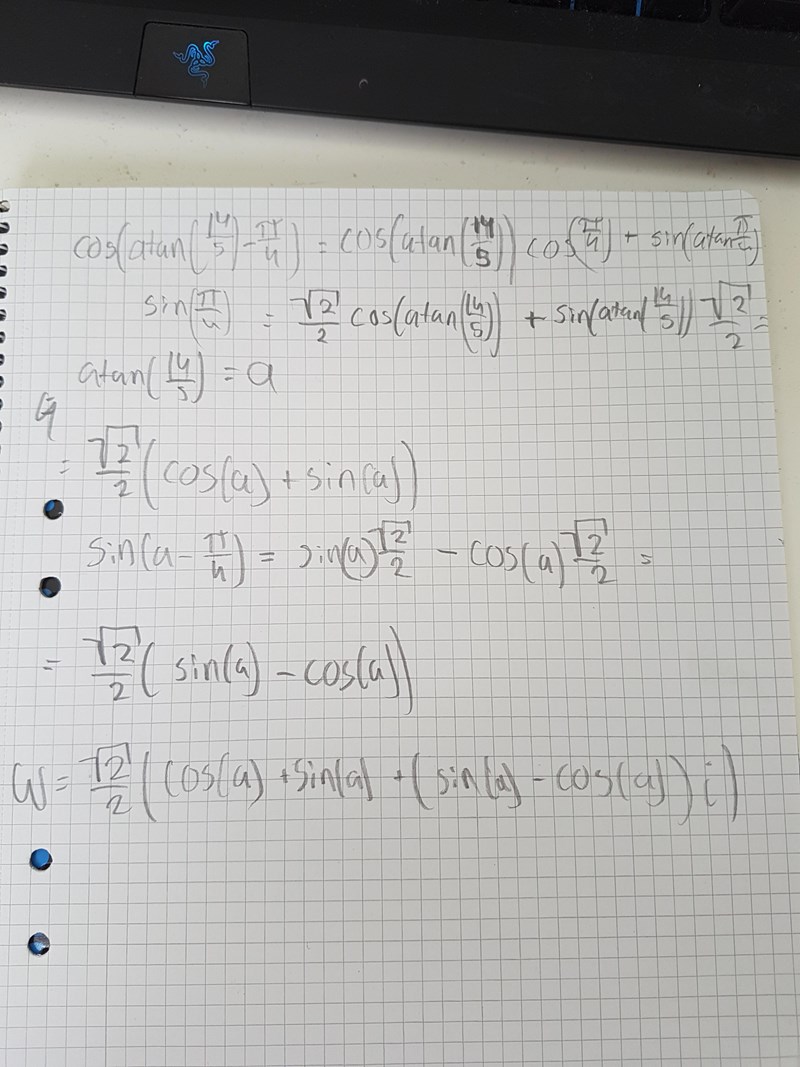 cos(atan(14/5) - π/4) = cos(atan(14/5)) cos(π/4) + sin(atan π/4)
sin(π/4) = √2/2 cos(atan(14/5)) + sin(atan(14/5)) √2/2 =
atan(14/5) = a
= √2/2 (cos(a) + sin(a))
sin(a - π/4) = sin(a) √2/2 - cos(a) √2/2 =
= √2/2 (sin(a) - cos(a))
W = √2/2 (cos(a) + sin(a) + (sin(a) - cos(a))i)